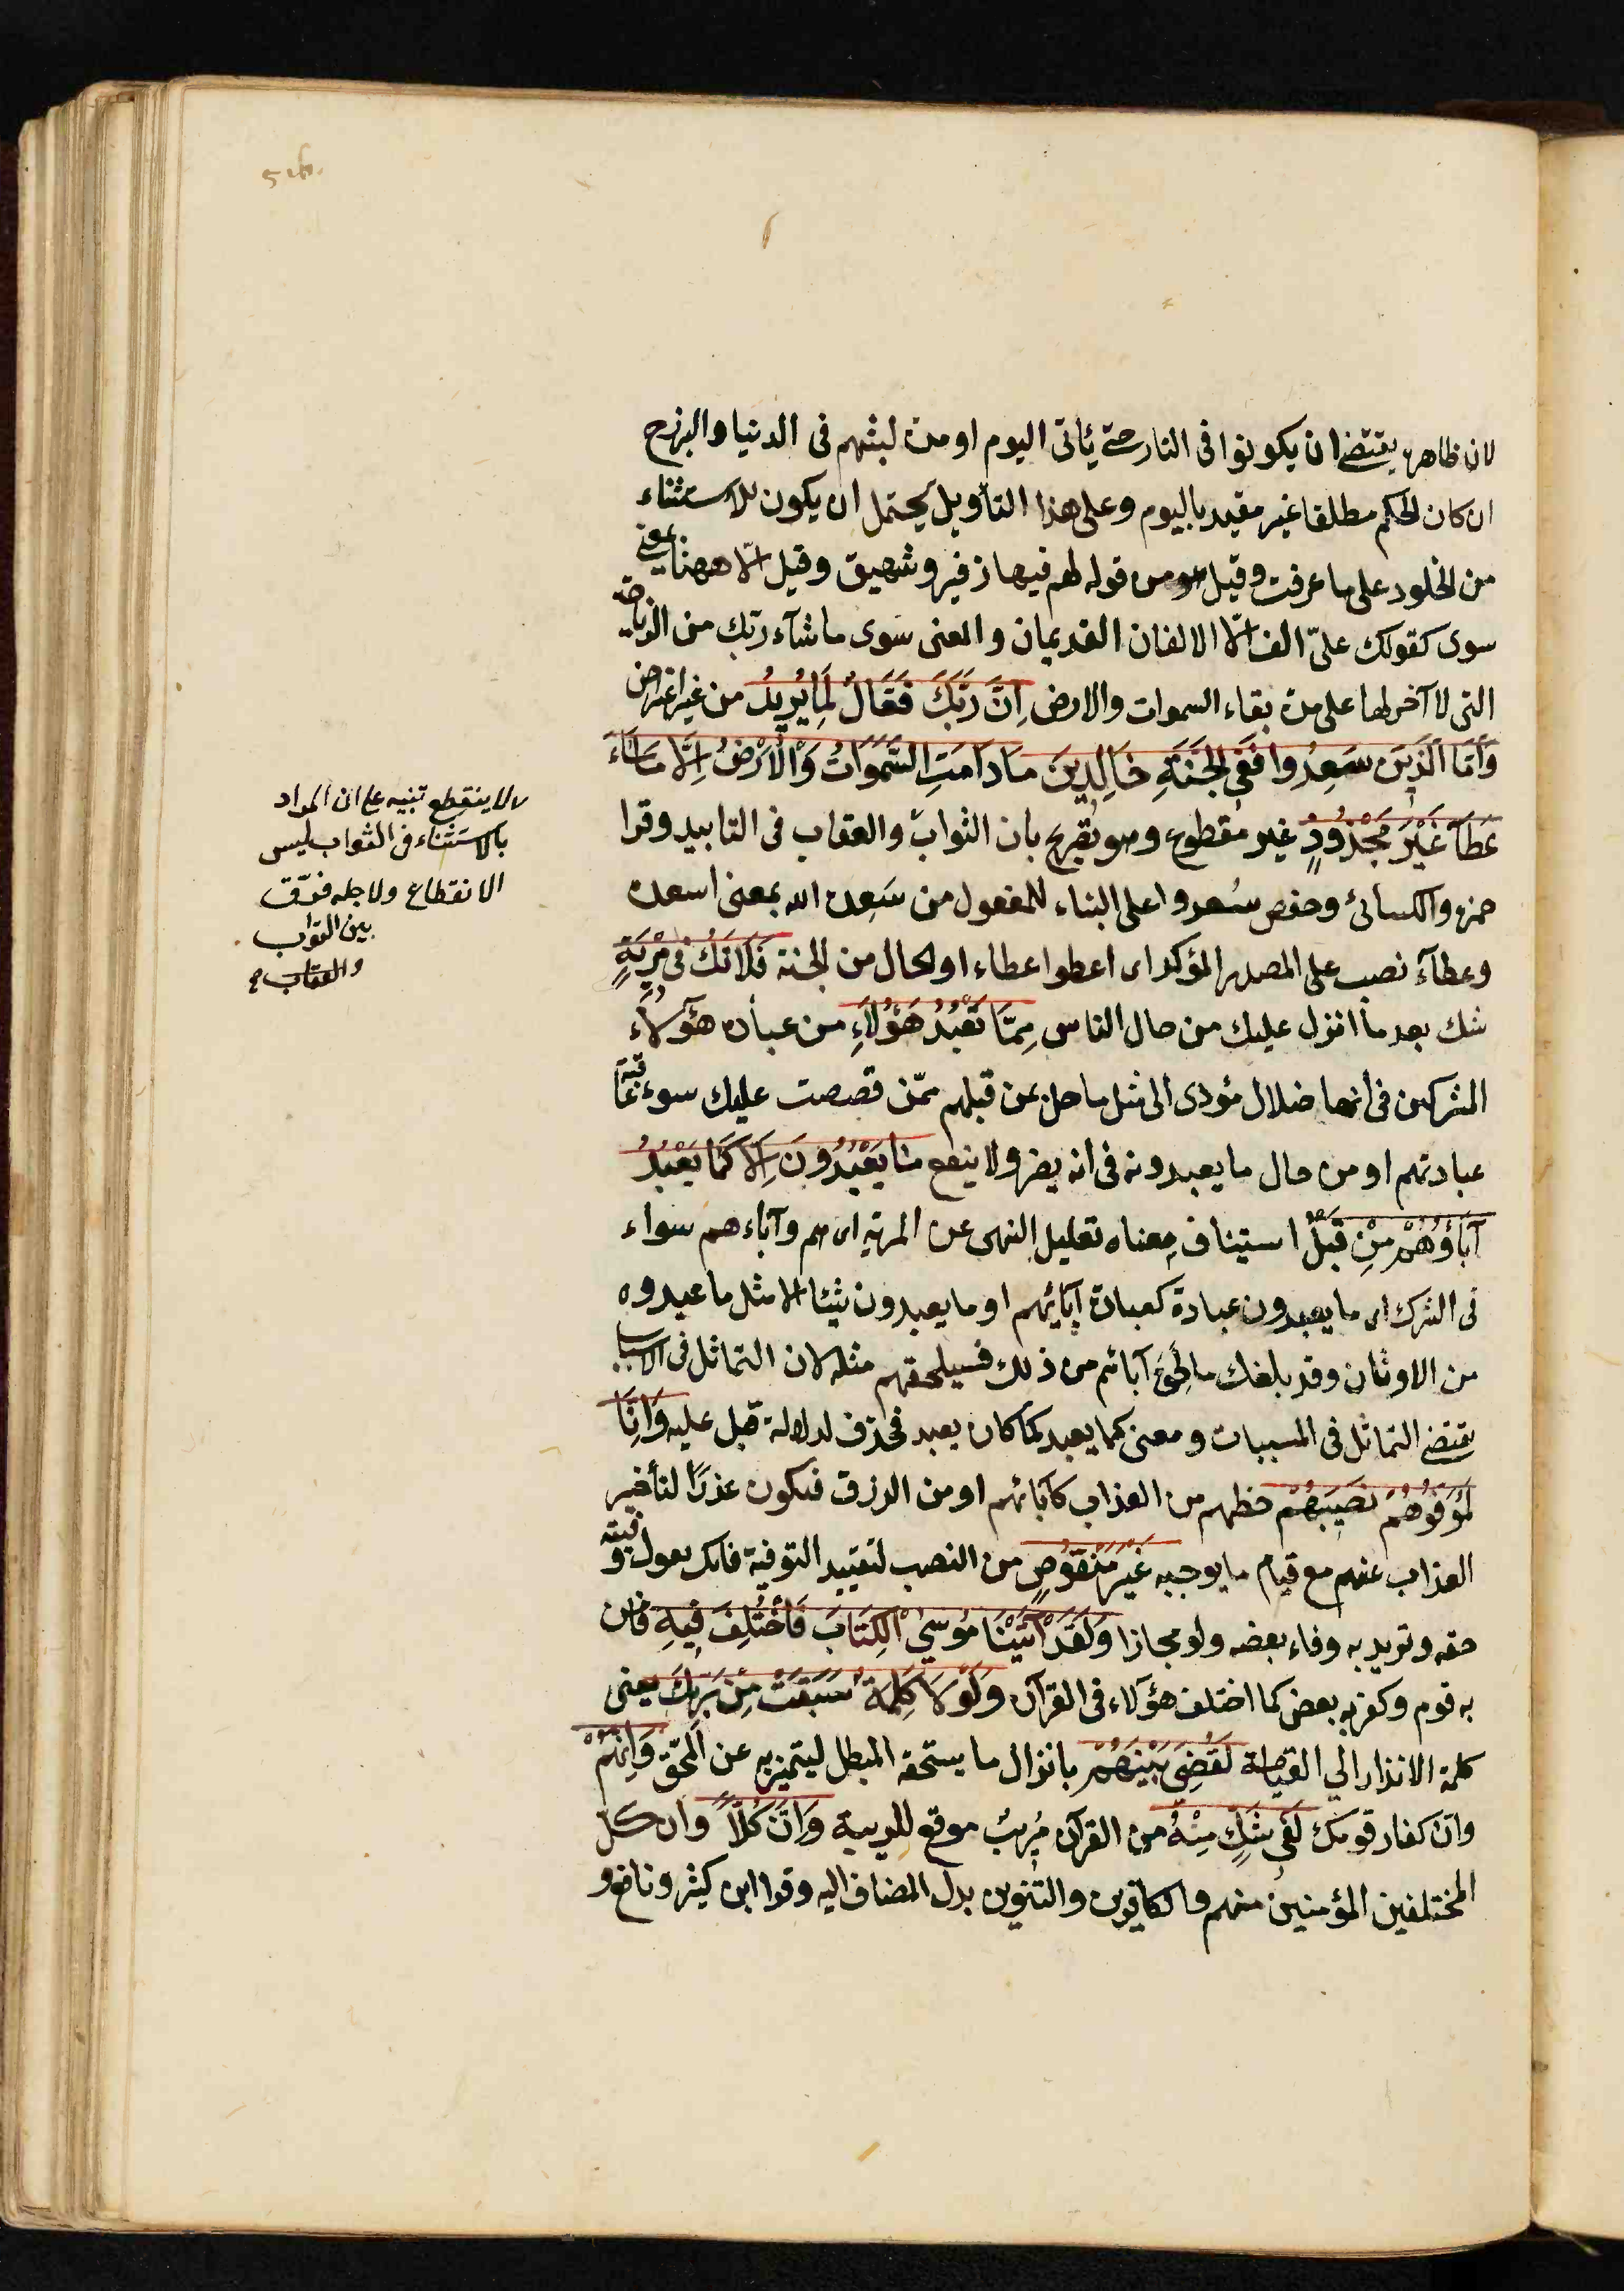 لان ظاهره يقتضى ان يكونوا فى النار حتى يأتى اليوم او مدة لبثهم فى الدنيا والبرزخ
ان كان الحكم مطلقا غير مقيد باليوم وعلى هذا التأويل يحتمل ان يكون للاستثناء
من الخلود على ما عرفت وقيل هو من قوله لهم فيها زفير وشهيق وقيل الّا ههنا بمعنى
سوى كقولك علىّ الف الّا الالفان القديمان والمعنى سوى ما شآء ربّك من الزيادة
التى لا آخر لها على مدة بقاء السموات والارض اِنَّ رَبَّكَ فَعَّالٌ لِمَا يُرِيدُ من غير اعتراض
وَاَمَّا الَّذِينَ سَعِدُوا فَفِى الْجَنَّةِ خَالِدِينَ مَا دَامَتِ السَّمَوَاتُ وَالْاَرْضُ اِلَّا مَا شَاءَ
عَطَآءً غَيْرَ مَجْذُوذٍ غير مقطوع وهو تصريح بان الثواب والعقاب فى التابيد وقرا
حمزه والكسائى وحفص سُعدوا على البناء للمفعول من سَعِده الله بمعنى اسعده
وعطآءً نصب على المصدر المؤكد اى اعطوا عطاء او الحال من الجنة فَلَا تَكُ فِى مِرْيَةٍ
شك بعد ما انزل عليك من حال الناس مِمَّا يَعْبُدُ هَؤُلَاءِ من عبادة هؤلآء
المشركين فى انها ضلال مؤدى الى مثل ما حل بمن قبلهم ممّن قصصت عليك سوء عاقبة
عبادتهم او من حال ما يعبدونه فى انه يضر ولا ينفع مَا يَعْبُدُونَ اِلَّا كَمَا يَعْبُدُ
آبَاؤُهُمْ مِنْ قَبْلُ استيناف معناه تعليل النهى عن المرية اى هم وآباءهم سواء
فى الشرك اى ما يعبدون عبادة كعبادة آبائهم او ما يعبدون شيئا الا مثل ما عبدوه
من الاوثان وقد بلغك ما لحق آبائهم من ذلك فسيلحقهم مثله لان التماثل فى الاسباب
يقتضى التماثل فى المسببات ومعنى كما يعبد كما كان يعبد فحذف لدلالة قبل عليه وَاِنَّا
لَمُوَفُّوهُمْ نَصِيبَهُمْ حظهم من العذاب كآبائهم او من الرزق فيكون عذرًا لتأخير
العذاب عنهم مع قيام ما يوجبه غَيْرَ مَنْقُوصٍ من النصب لتقييد التوفية فانك تقول وفيته
حقه وتريد به وفاء بعضه ولو مجازا وَلَقَدْ آتَيْنَا مُوسَى الْكِتَابَ فَاخْتُلِفَ فِيهِ فامن
به قوم وكفر به بعض كما اختلف هؤلاء فى القرآن وَلَوْلَا كَلِمَةٌ سَبَقَتْ مِنْ رَبِّكَ يعنى
كلمة الانذار الي القيامة لَقُضِىَ بَيْنَهُمْ بانزال ما يستحقه المبطل ليتميز به عن المحقّ وَاِنَّهُمْ
وانّ كفار قومك لَفِى شَكٍّ مِنْهُ من القرآن مُرِيبٌ موقع للريبة وَاِنَّ كُلًّا وان كل
المختلفين المؤمنين منهم والكافرين والتنوين بدل المضاف اليه وقرا ابن كثير ونافع و
لا ينقطع تنبيه على ان المراد
بالاستثناء فى الثواب ليس
الانقطاع ولاجله فرّق
بين الثواب
والعقاب